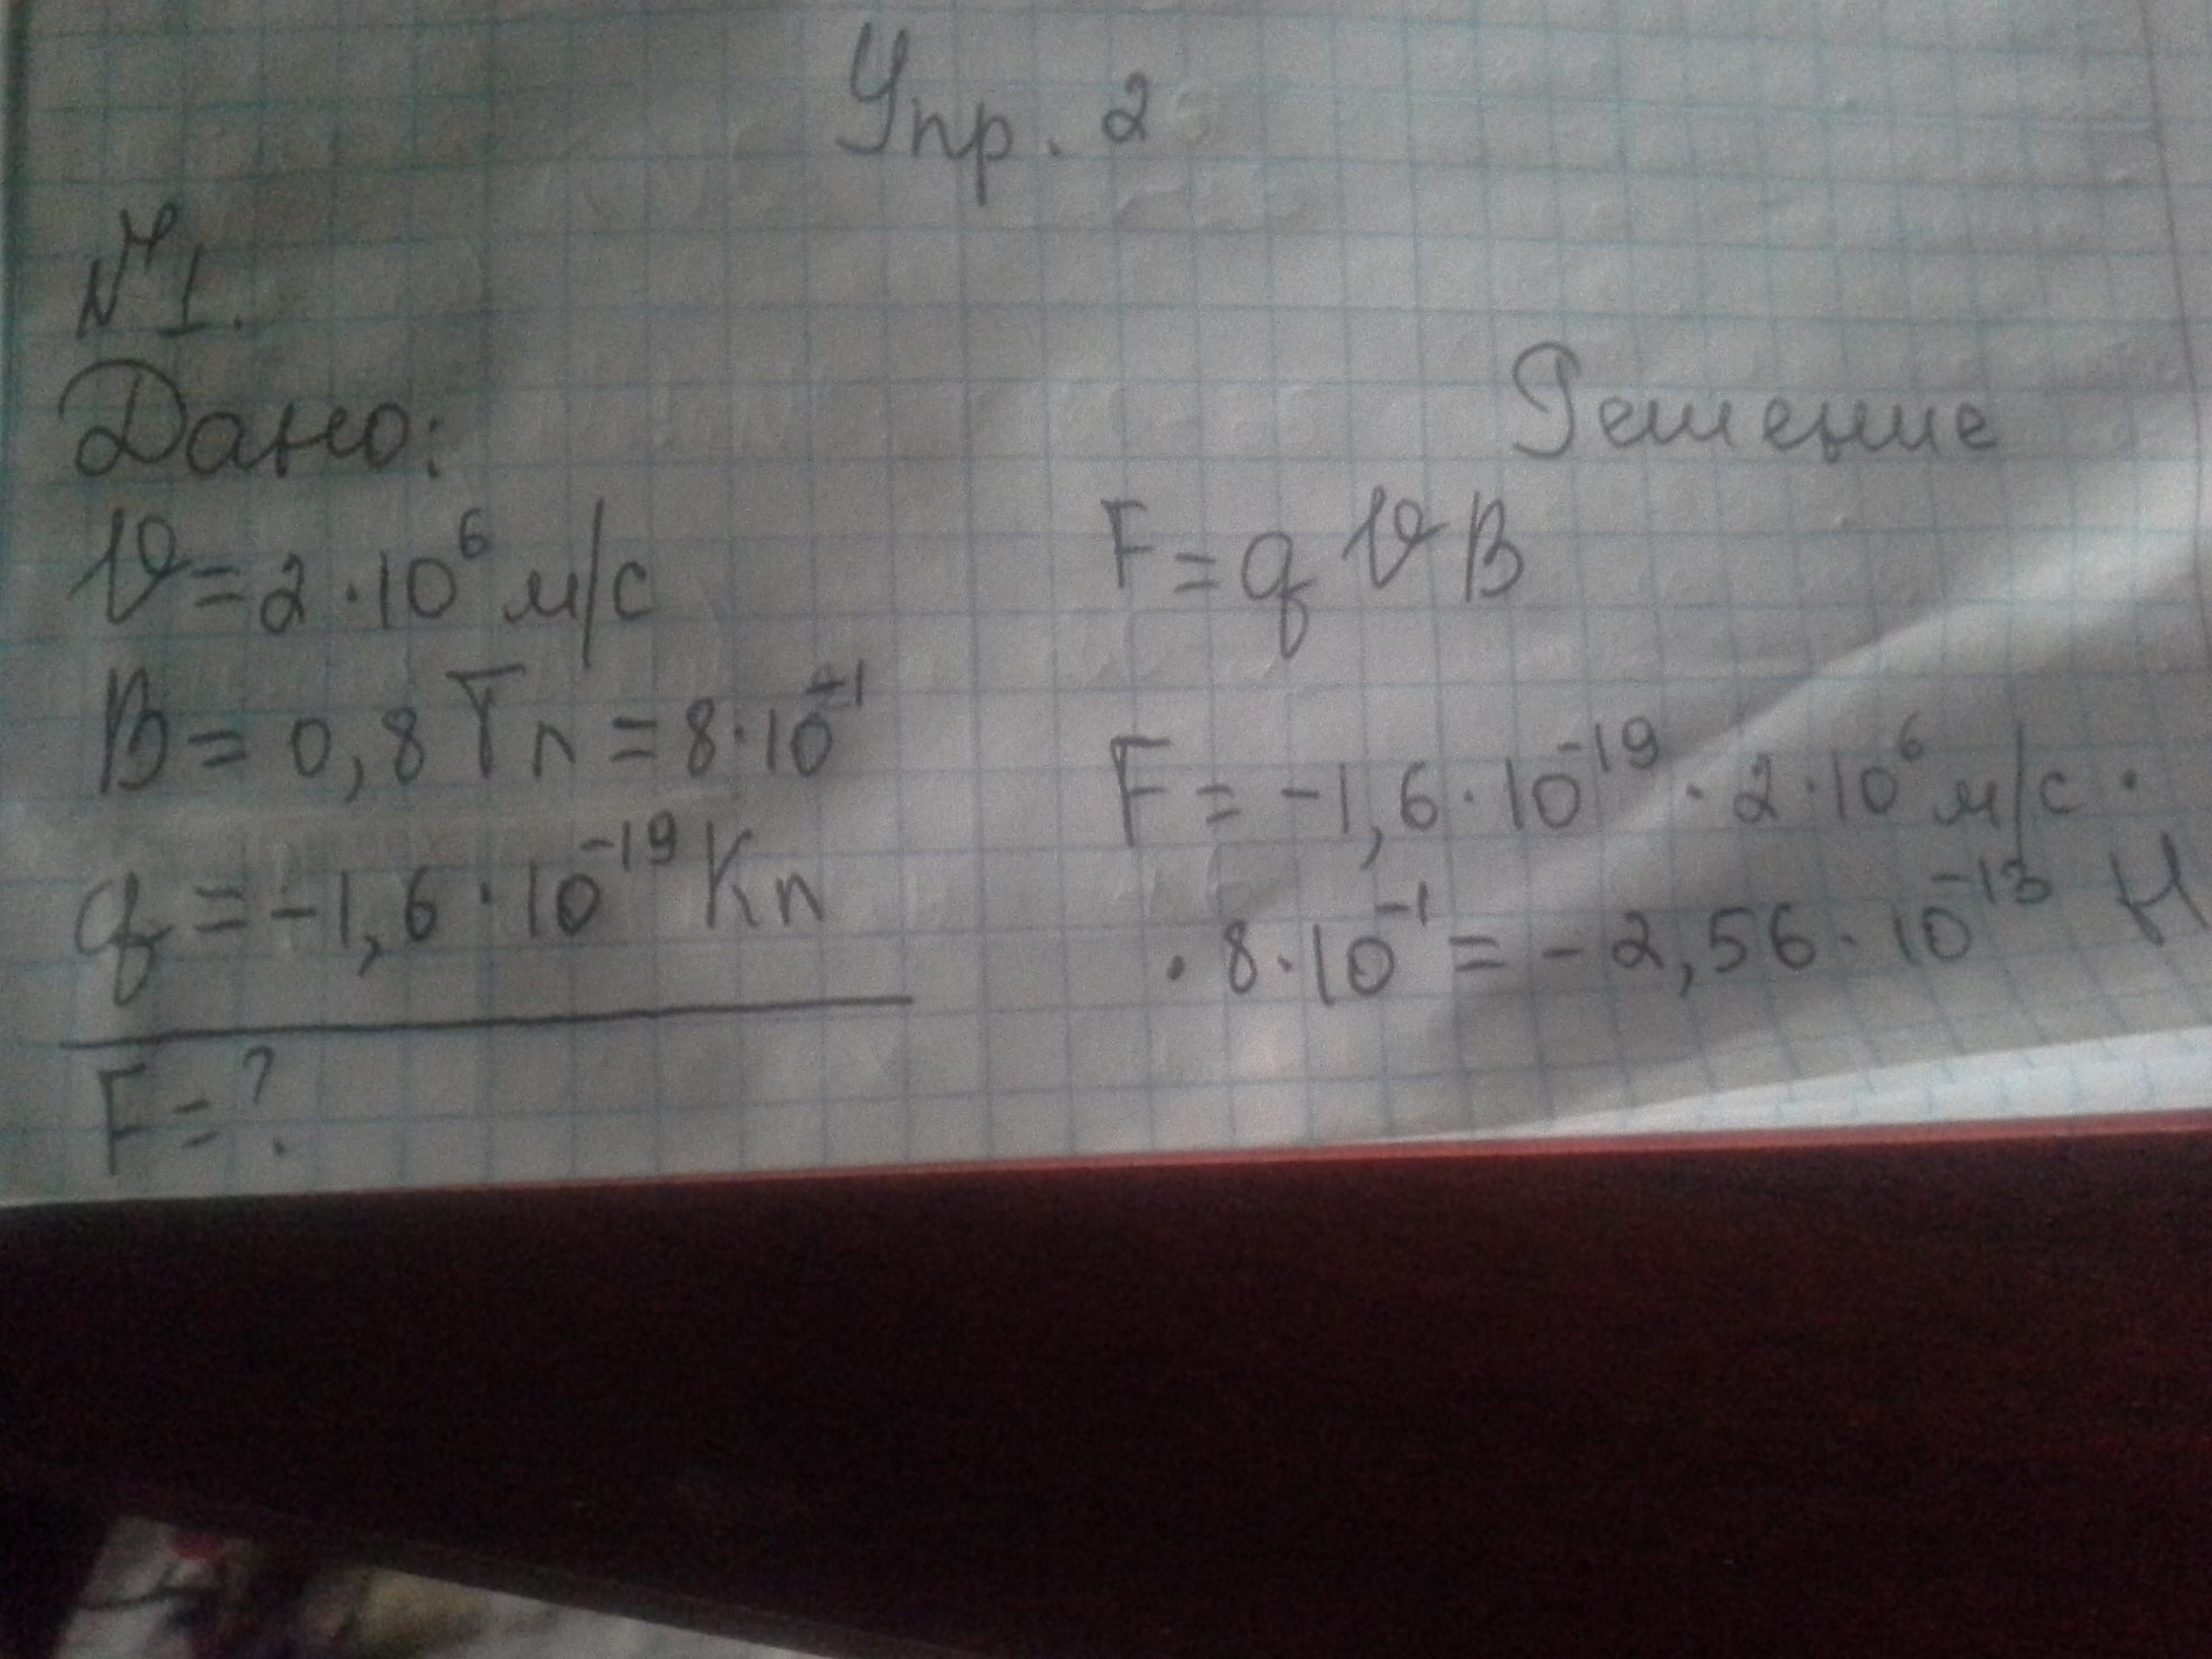 Упр. 2
№1.
Дано:
υ=2·10⁶ м/с
B=0,8 Тл=8·10⁻¹
q=-1,6·10⁻¹⁹ Кл
F=?
Решение
F=qυB
F=-1,6·10⁻¹⁹·2·10⁶ м/с·
·8·10⁻¹=-2,56·10⁻¹³ Н